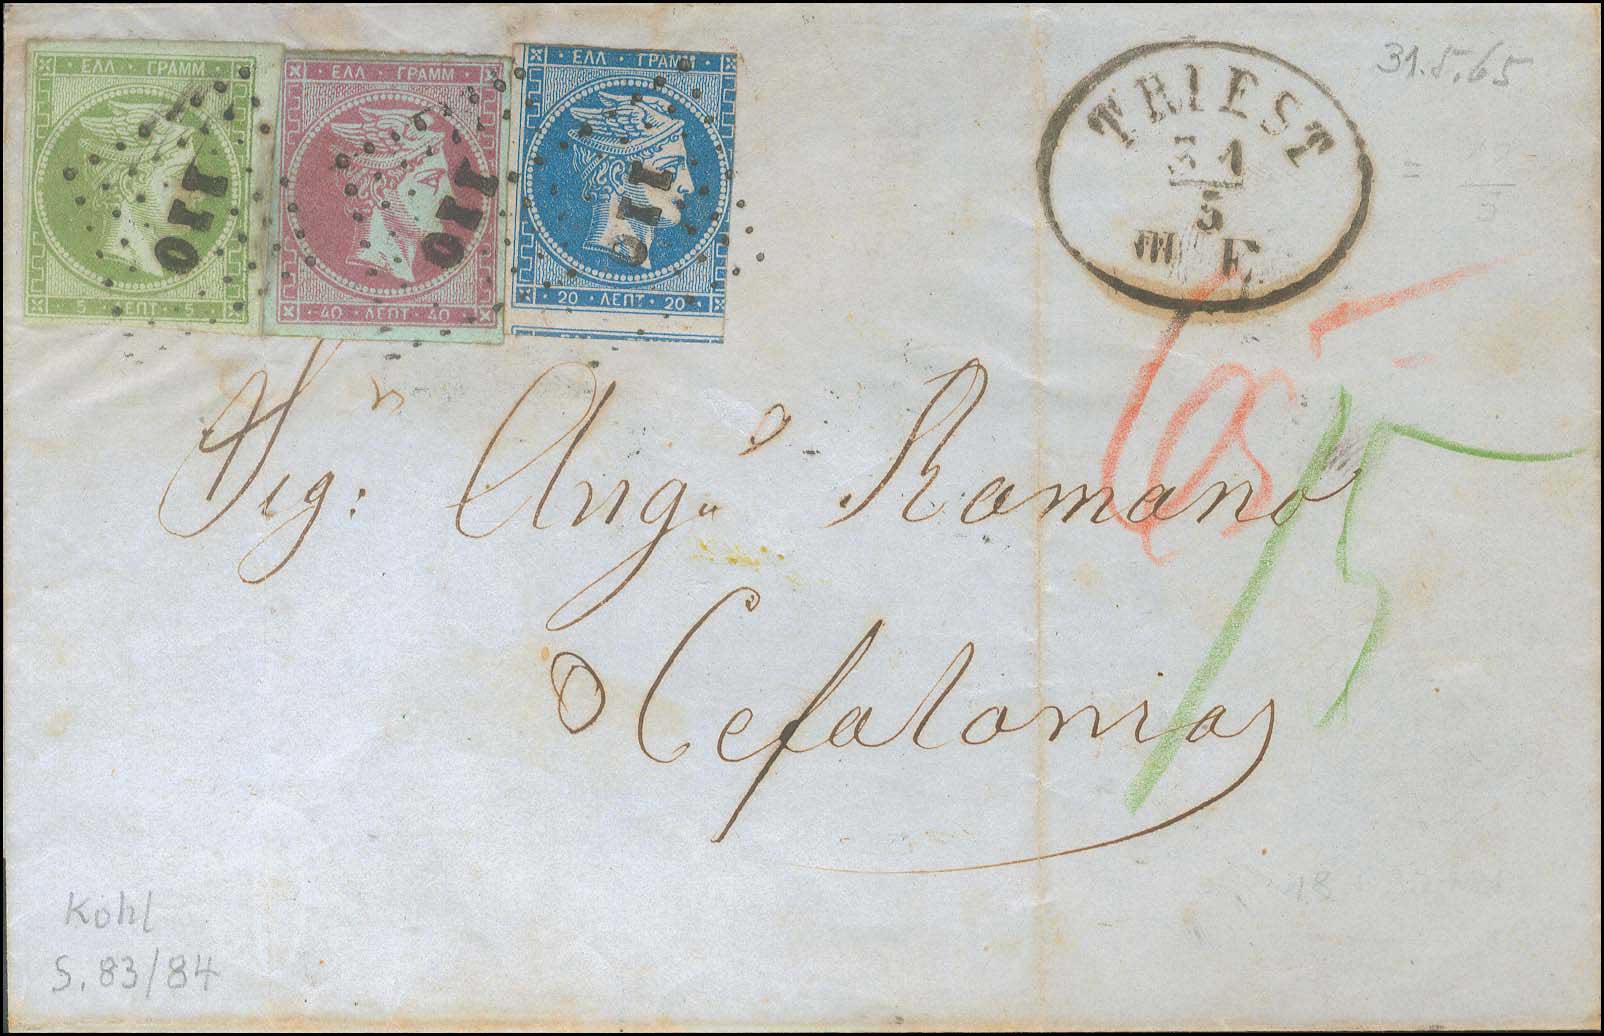 ΕΛΛ · ΓΡΑΜΜ
5 · ΛΕΠΤ · 5
110
ΕΛΛ · ΓΡΑΜΜ
40 · ΛΕΠΤ · 40
110
ΕΛΛ · ΓΡΑΜΜ
20 · ΛΕΠΤ · 20
110
TRIEST
31
5
III E.
31.5.65
65
15
Sig: Angᵒ Romano
Cefalonia
18
Kohl
S. 83/84